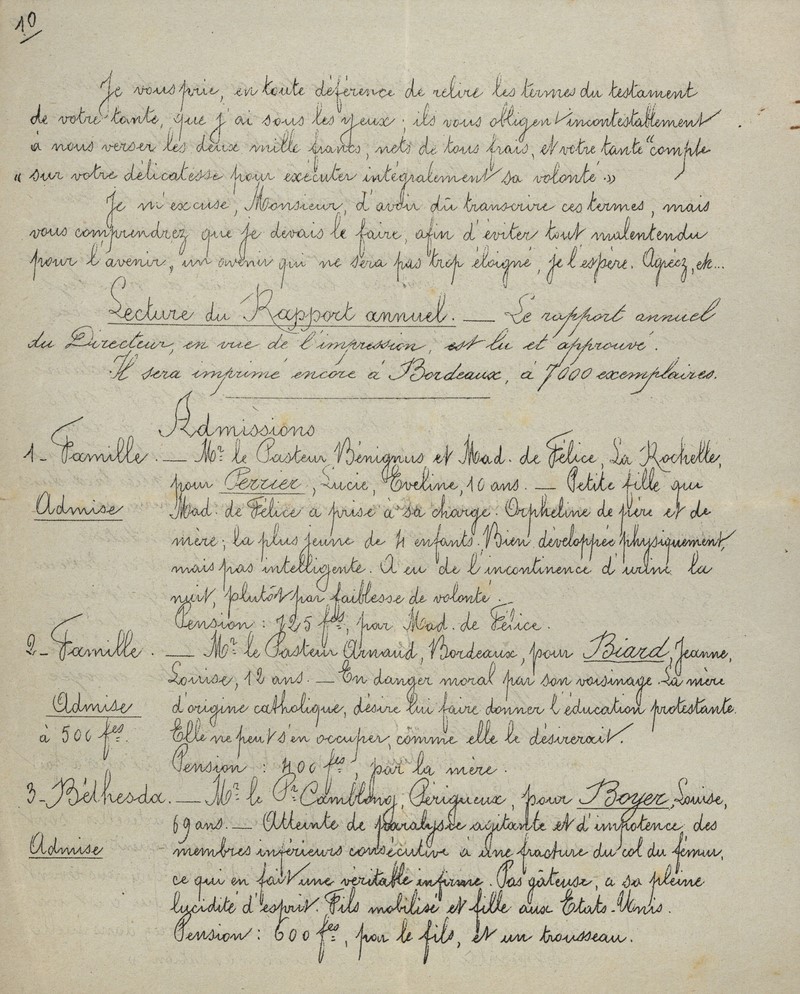 10
Je vous prie, en toute déférence de relire les termes du testament
de votre tante, que j'ai sous les yeux ; ils vous obligent incontestablement
à nous verser les deux mille francs, nets de tous frais, et votre tante "compte
« sur votre délicatesse pour exécuter intégralement sa volonté. »
Je m'excuse, Monsieur, d'avoir dû transcrire ces termes, mais
vous comprendrez que je devais le faire, afin d'éviter tout malentendu
pour l'avenir, un avenir qui ne sera pas trop éloigné, je l'espère. Agréez, etc...
Lecture du Rapport annuel. — Le rapport annuel
du Directeur, en vue de l'impression, est lu et approuvé.
Il sera imprimé encore à Bordeaux, à 7000 exemplaires.
Admissions
1- Famille. — Mr. le Pasteur Bénignus et Mad. de Félice, La Rochelle,
pour Perrier, Lucie, Eveline, 10 ans. — Petite fille que
Admise Mad. de Félice a prise à sa charge. Orpheline de père et de
mère ; la plus jeune de 4 enfants. Bien développée physiquement,
mais pas intelligente. A eu de l'incontinence d'urine la
nuit, plutôt par faiblesse de volonté.
Pension : 725 fcs, par Mad. de Félice.
2- Famille. — Mr. le Pasteur Arnaud, Bordeaux, pour Biard, Jeanne,
Louise, 12 ans. — En danger moral par son voisinage. La mère
Admise d'origine catholique, désire lui faire donner l'éducation protestante.
à 500 fcs. Elle ne peut s'en occuper, comme elle le désirerait.
Pension : 400 fcs, par la mère.
3- Béthesda. — Mr. le Pr. Camblong, Périgueux, pour Boyer, Louise,
69 ans. — Atteinte de paralysie agitante et d'impotence des
Admise membres inférieurs consécutive à une fracture du col du fémur,
ce qui en fait une véritable infirme. Pas gâteuse, a sa pleine
lucidité d'esprit. Fils mobilisé et fille aux Etats-Unis.
Pension : 600 fcs, par le fils, et un trousseau.